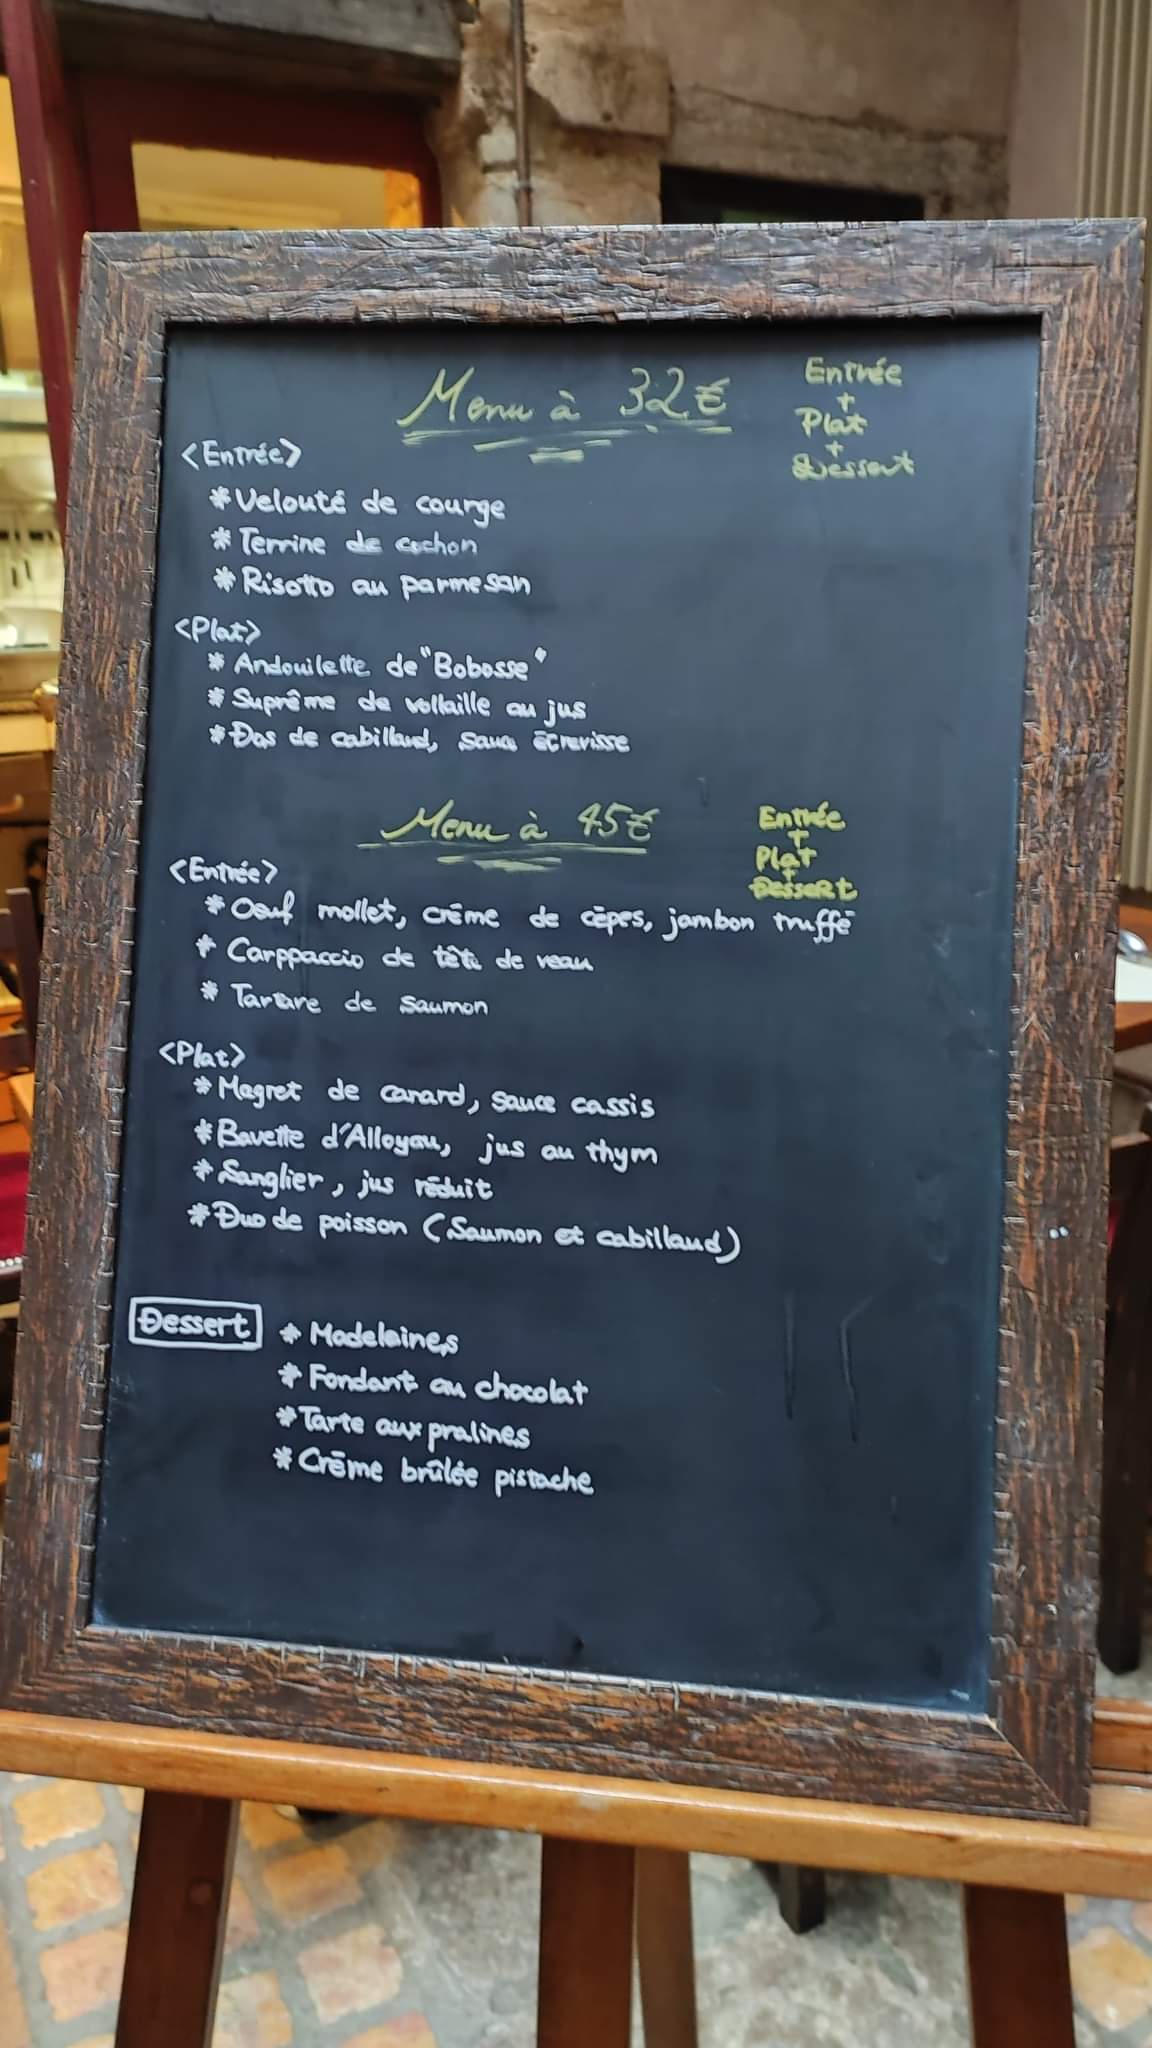 Menu à 32€
Entrée
+
Plat
+
Dessert
<Entrée>
*Velouté de courge
*Terrine de cochon
*Risotto au parmesan
<Plat>
*Andouilette de "Bobosse"
*Suprême de vollaille au jus
*Dos de cabillaud, sauce écrevisse
Menu à 45€
Entrée
+
Plat
+
DesseRt
<Entrée>
*Oeuf mollet, créme de cêpes, jambon truffé
*Carppaccio de tête de veau
*Tartare de saumon
<Plat>
*Magret de canard, sauce cassis
*Bavette d'Alloyau, jus au thym
*Sanglier, jus réduit
*Duo de poisson (Saumon et cabillaud)
Dessert
*Madelaines
*Fondant au chocolat
*Tarte aux pralines
*Créme brûlée pistache